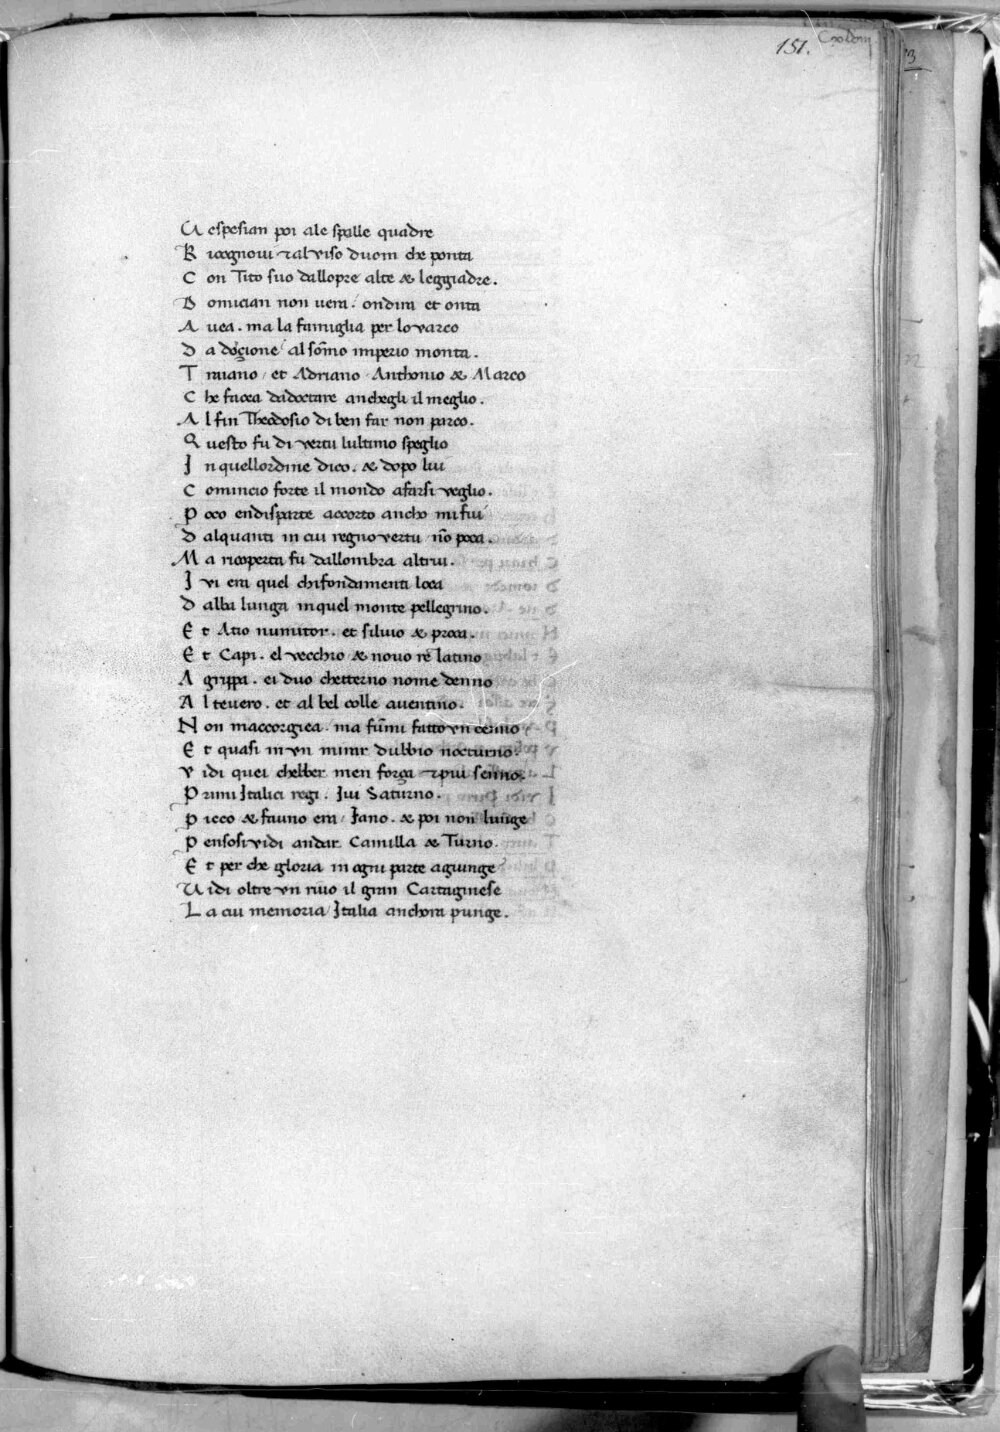 151.
U espesian poi ale spalle quadre
R icognoui ⁊ al viso duom che ponta
C on Tito suo dallopre alte & leggiadre.
D omician non uera / ondira et onta
A uea . ma la famiglia per lo varco
D adozione / al sōmo imperio monta .
T raiano / et Adriano / Anthonio & Marco
C he facea dadoctare anchegli il meglio .
A l fin Theodosio di ben far non parco .
Q uesto fu di vertu lultimo speglio
I n quellordine dico . & dopo lui
C omincio forte il mondo afarsi veglio .
P oco endisparte accorto ancho mi fui
D alquanti in cui regno vertu nō poca .
M a ricoperta fu dallombra altrui .
I vi era quel chifondamenti loca
D alba lunga inquel monte pellegrino .
E t Atio numitor . et siluio & proca .
E t Capi . el vecchio & nouo re latino
A grippa . ei duo chetterno nome denno
A l teuero . et al bel colle auentino .
N on maccorgiea . ma fūmi fatto vn cenno
E t quasi in vn mirar dubbio nocturno .
V idi quei chebber men forza ⁊ piu senno .
P rimi Italici regi . Iui Saturno .
P icco & fauno era / Iano . & poi non lunge
P ensosi vidi andar Camilla & Turno .
E t per che gloria in ogni parte agiunge
U idi oltre vn riuo il gran Cartaginese
L a cui memoria / Italia anchora punge .